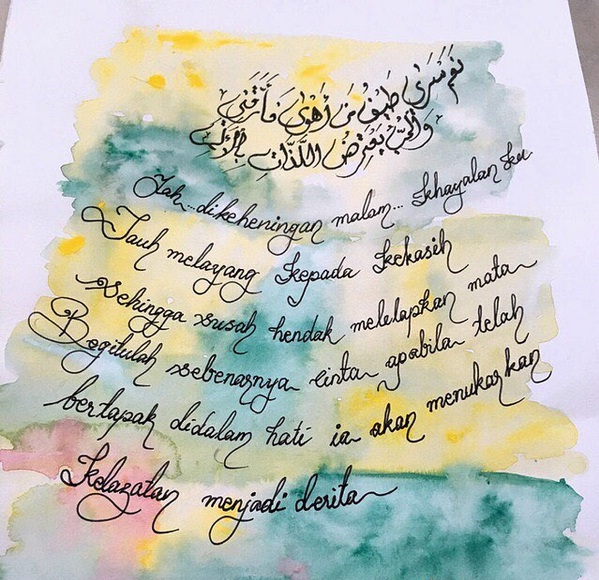 نَعَمْ سَرَى طَيْفُ مَنْ أَهْوَى فَأَرَّقَنِي
وَالْحُبُّ يَعْتَرِضُ اللَّذَّاتِ بِالْأَلَمِ
Yah...dikeheningan malam... khayalan ku
Jauh melayang kepada kekasih
Sehingga susah hendak melelapkan mata
Begitulah sebenarnya cinta apabila telah
bertapak didalam hati ia akan menukarkan
Kelazatan menjadi derita